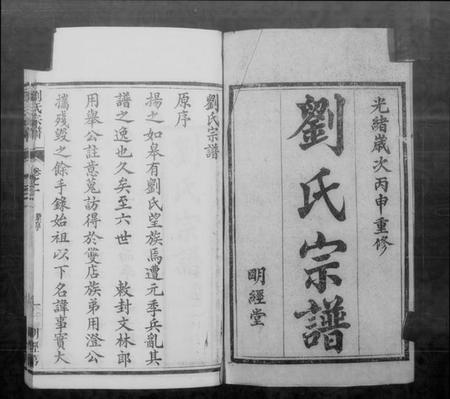 光緒歲次丙申重修
劉氏宗譜
明經堂
劉氏宗譜
原序
揚之如皋有劉氏望族焉遭元季兵亂其
譜之逸也久矣至六世 敕封文林郎
用舉公註意蒐訪得於雙店族弟用澄公
攜殘毀之餘手錄始祖以下名諱事實大
劉氏宗譜
卷之一